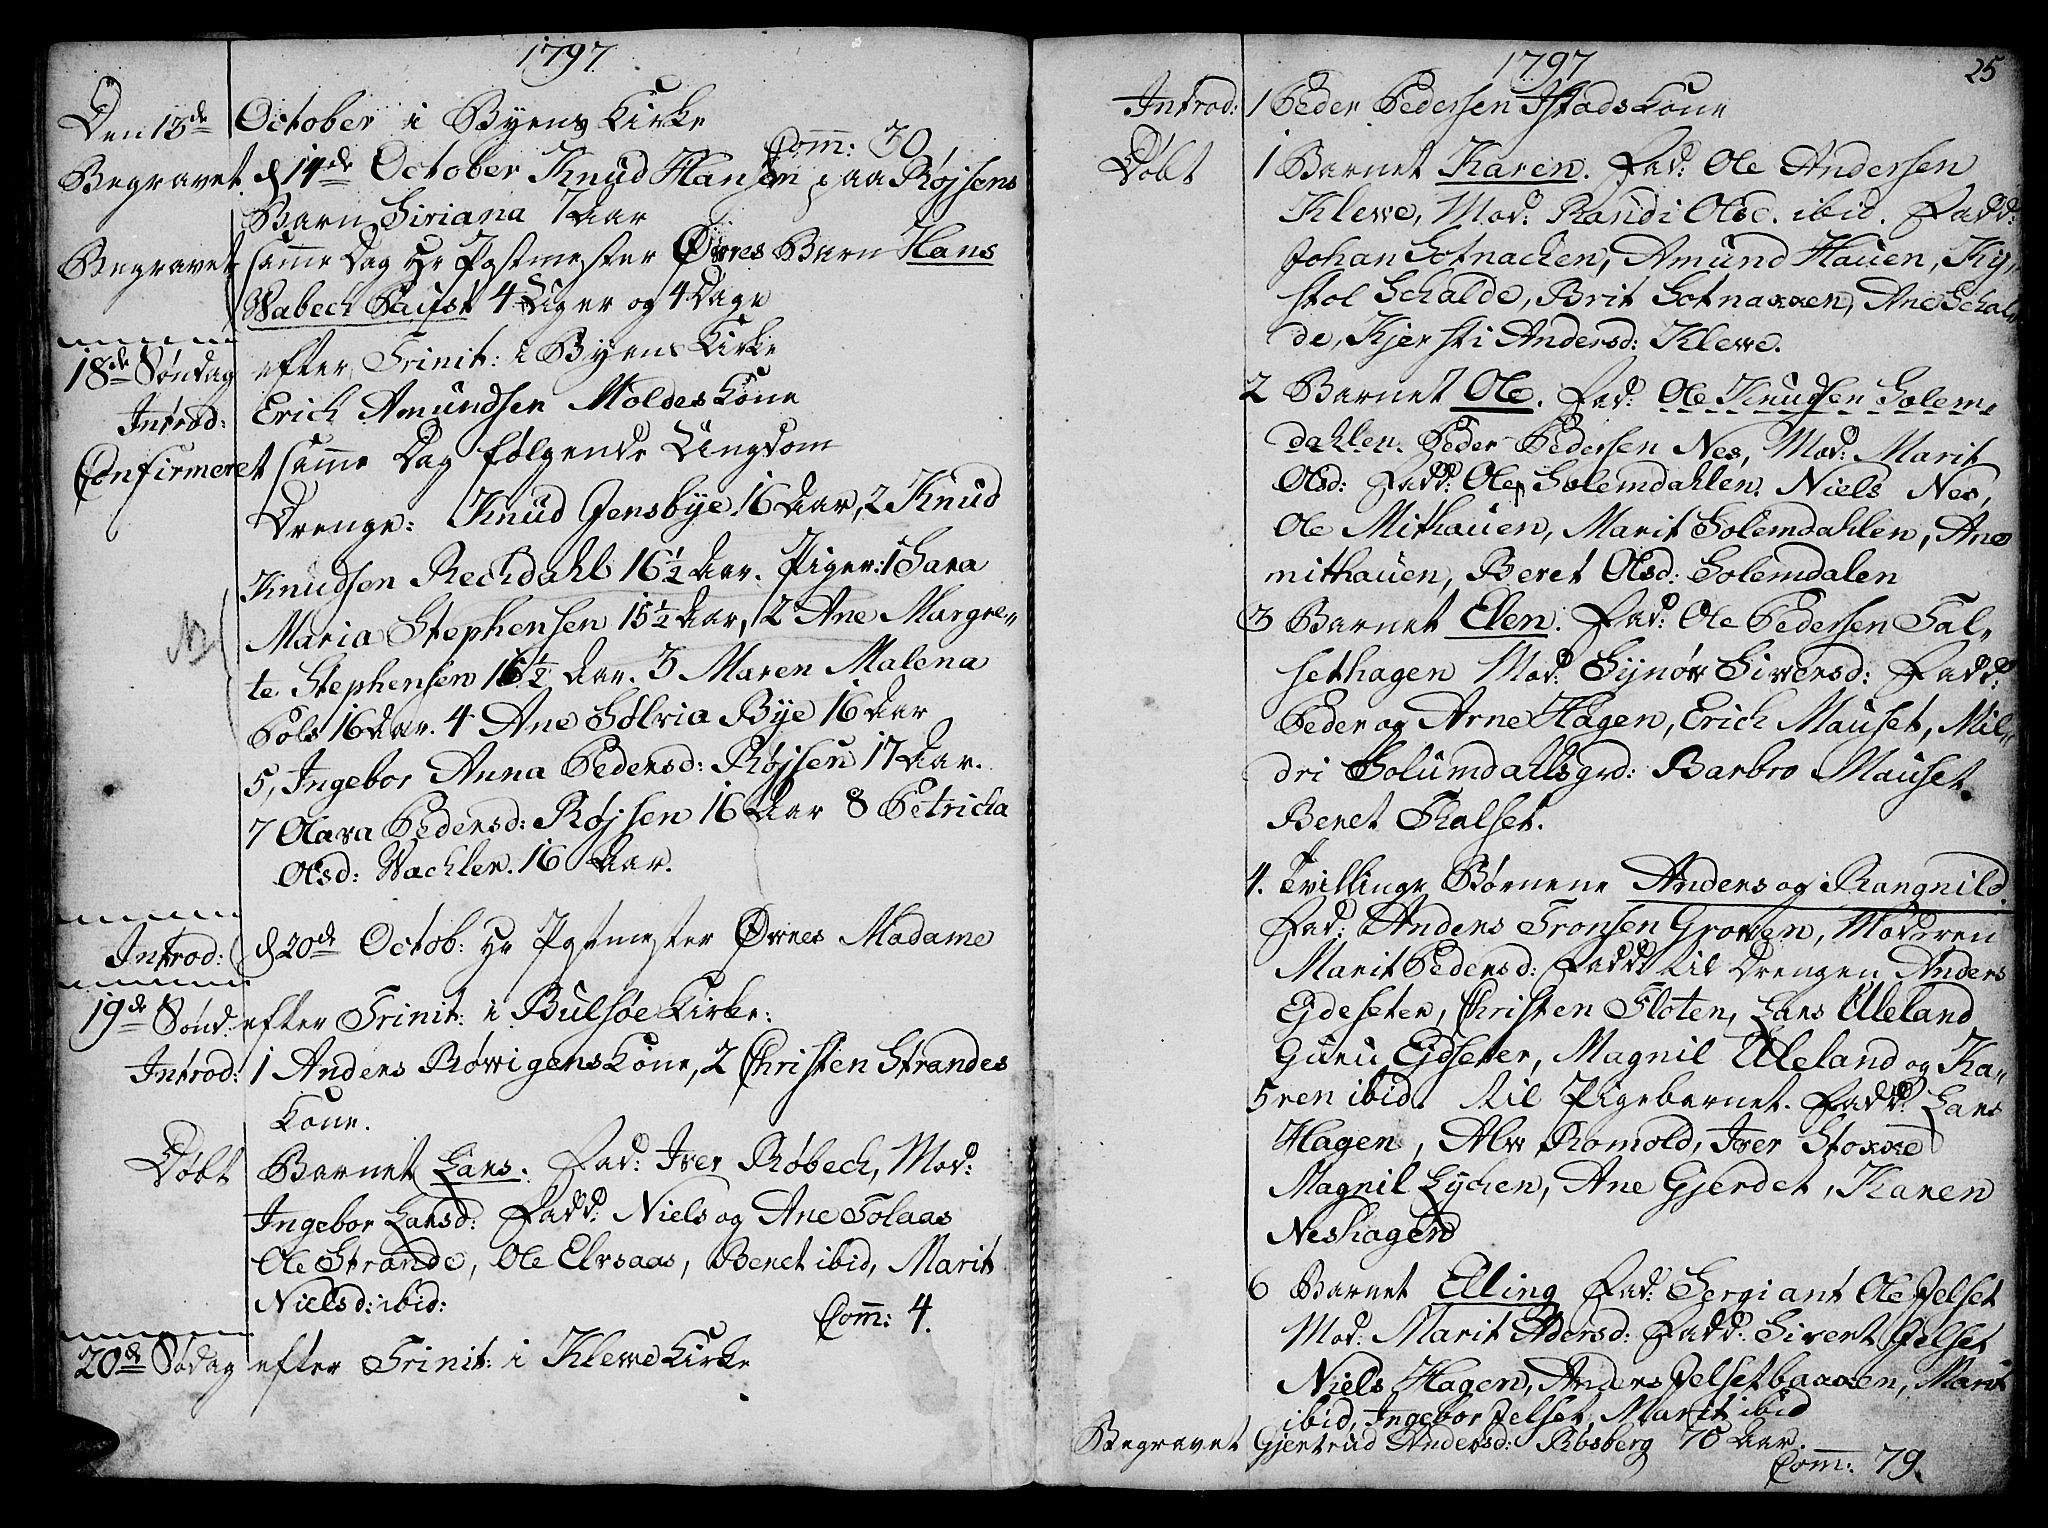 1797
Den 13de October i Byens Kirke
Comm: 30
Begravet d 14de October Knud Hansen paa Røjsens
Barn Siriana 7 Aar
Begravet samme Dag Hr Postmester Ørnes Barn Hans
Wabech Pauist 4 Uger og 4 Dage
18de Søndag efter Trinit: i Byens Kirke
Introd: Erich Amundsen Moldes Kone
Confirmeret samme Dag følgende Ungdom
Drenge: Knud Jensbye 16 Aar, 2 Knud
Knudsen Rechdahl 16½ Aar. Piger: 1 Sara
Maria Stephensen 15½ Aar, 2 Ane Margre-
te Stephensen 16½ Aar. 3 Maren Malena
Pols 16 Aar. 4 Ane Sølvia Bye 16 Aar
5, Ingebor Anna Pedersd: Røjsen 17 Aar.
7 Olava Pedersd: Røjsen 16 Aar 8 Petricha
Olsd: Wachler. 16 Aar.
Introd: d 20de Octob: Hr Postmester Ørnes Madame
19de Sønd: efter Trinit: i Bulsøe Kirke:
Introd: 1 Anders Røvvigens Kone, 2 Christen Strandes
Kone.
Døbt Barnet Lars. Fad: Iver Røbech, Mod:
Ingebor Larsd: Fadd: Niels og Ane Folaas
Ole Strande, Ole Elvsaas, Beret ibid, Marit
Nielsd: ibid:
Comm: 4.
20de Sødag efter Trinit: i Klewe Kirke
1797
25
Introd: 1 Peder Pedersen Istads Kone
Døbt 1 Barnet Karen. Fad: Ole Andersen
Klewe, Mod: Randi Olsd. ibid. Fadd:
Johan Sotnachen, Amund Hauen, Kry-
stol Schalde, Brit Sotnakken, Ane Schal-
de, Kjersti Andersd: Klewe.
2 Barnet Ole. Fad: Ole Knudsen Solem-
dahlen. Peder Pedersen Nes, Mod: Marit
Olsd: Fadd: Ole Solemdahlen. Niels Nes,
Ole Mithauen, Marit Solemdahlen, Ane
mithauen, Beret Olsd: Solemdalen
3 Barnet Elen. Fad: Ole Pedersen Tal-
sethagen Mod: Synøw Siversd: Fadd:
Peder og Arne Hagen, Erich Mauset, Mil-
dri Solumdahlsgrd: Barbro Mauset.
Beret Talset.
4. Tvillinge Børnene Anders og Rangnild.
Fad: Anders Tronsen Growen, Moderen
Marit Pedersd: Fadd: til Drengen Anders
Ejdeseter, Christen Floten, Lars Uleland
Guru Ejdseter, Magnil Uleland og Ka-
5 ren ibid. til Pigebarnet. Fadd: Lars
Hagen, Alw Romold, Iver Stokke
Magnil Lychen, Ane Gjerdet, Karen
Neshagen
6 Barnet Elling Fad: Sergiant Ole Jelset
Mod: Marit Adersd: Fadd: Sivert Jelset
Niels Hagen, Anders Jelsetbakken, Marit
ibid, Ingebor Jelset, Marit ibid
Begravet Gjertrud Andersd: Røsberg 70 Aar.
Com: 79.